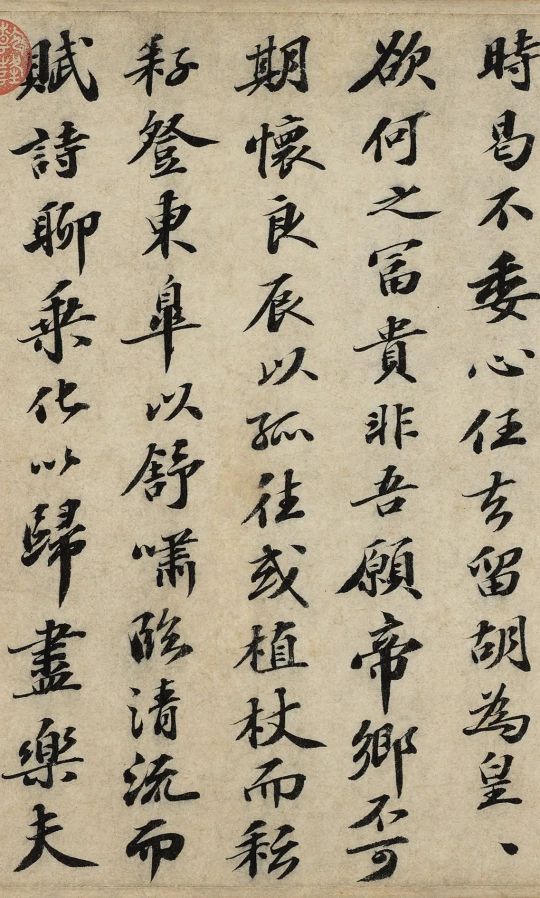 時曷不委心任去留胡為皇、
欲何之冨貴非吾願帝鄉不可
期懷良辰以孤往或植杖而耘
耔登東皐以舒嘯臨清流而
賦詩聊乘化以歸盡樂夫